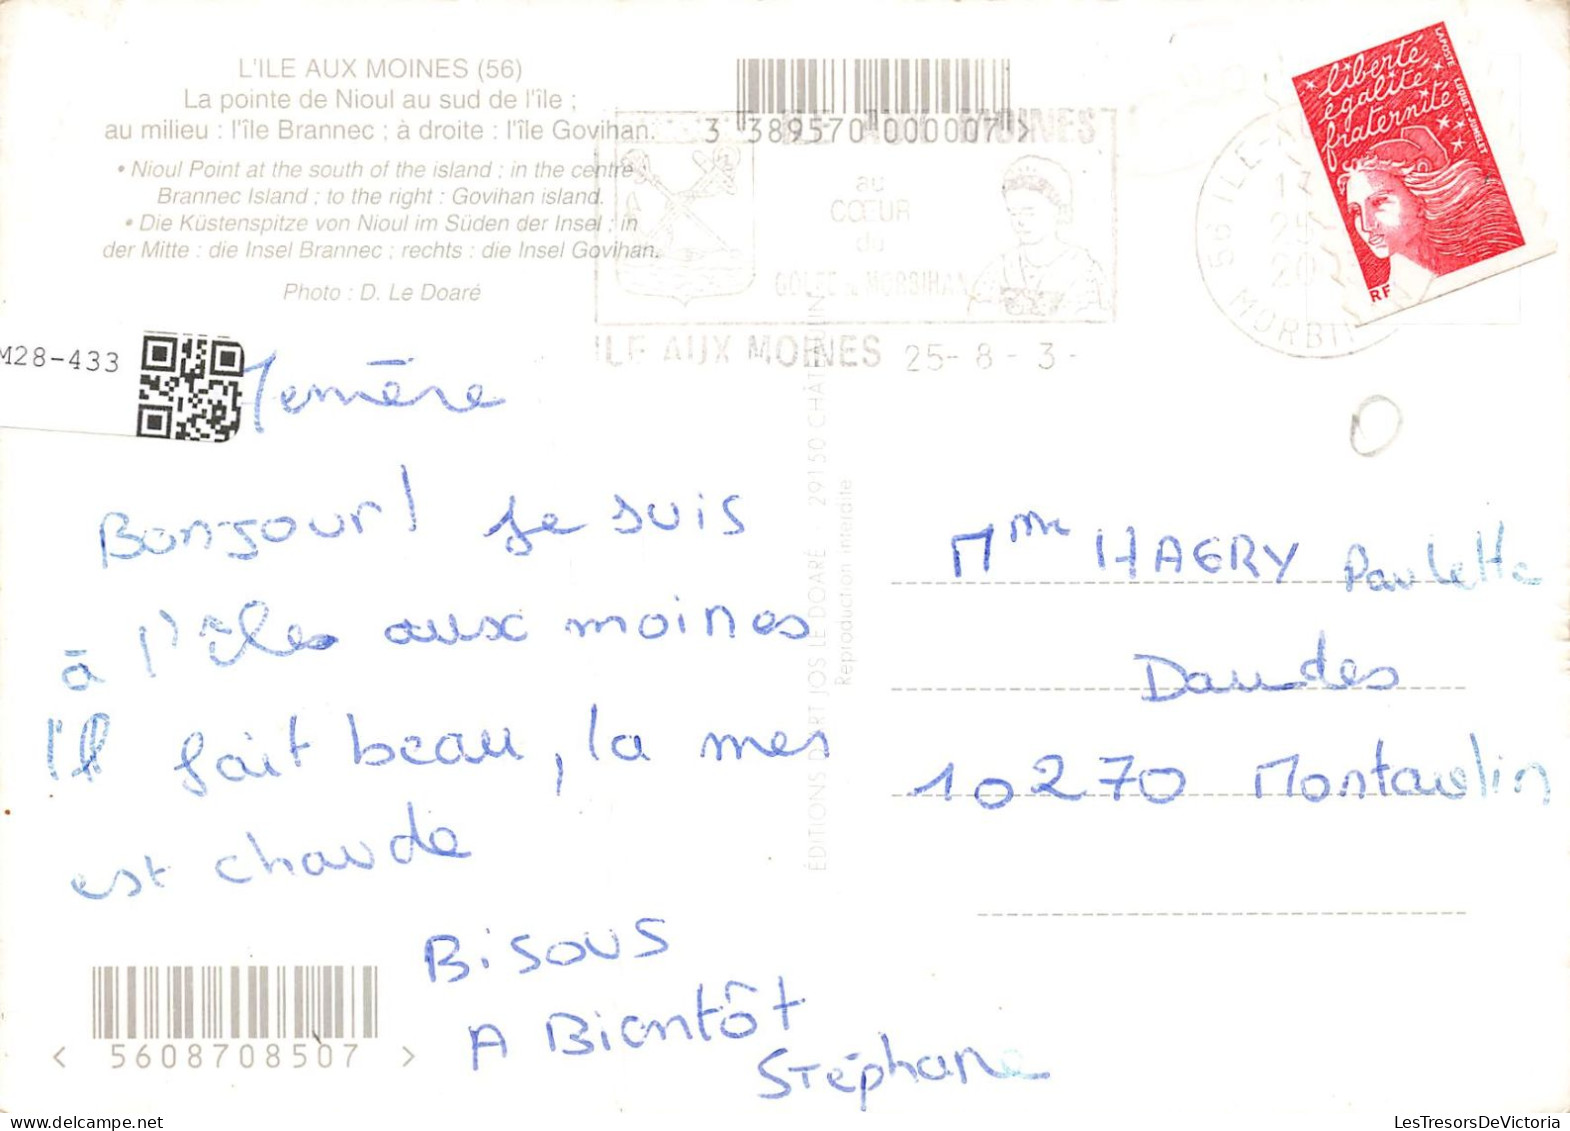 L'ILE AUX MOINES (56)
La pointe de Nioul au sud de l'île ;
au milieu : l'île Brannec ; à droite : l'île Govihan.
• Nioul Point at the south of the island ; in the centre
Brannec Island ; to the right : Govihan island.
• Die Küstenspitze von Nioul im Süden der Insel ; in
der Mitte : die Insel Brannec ; rechts : die Insel Govihan.
Photo : D. Le Doaré
3 389570 000007 >
ILE AUX MOINES
au
CŒUR
du
GOLFE du MORBIHAN
ILE AUX MOINES 25 - 8 - 3 -
56 ILE
17
25
20
MORBIH
liberté
égalité
fraternité
LA POSTE LUQUET-JUMELET
RF
M28-433
Mémère
Bonjour! Je suis
à l'îles aux moines
Il fait beau, la mer
est chaude
Bisous
A Bientôt
Stéphane
ÉDITIONS D'ART JOS LE DOARÉ 29150 CHÂTEAULIN
Reproduction interdite
Mme HAERY Paulette
Daudes
10270 Montaulin
< 5608708507 >
LesTresorsDeVictoria.com